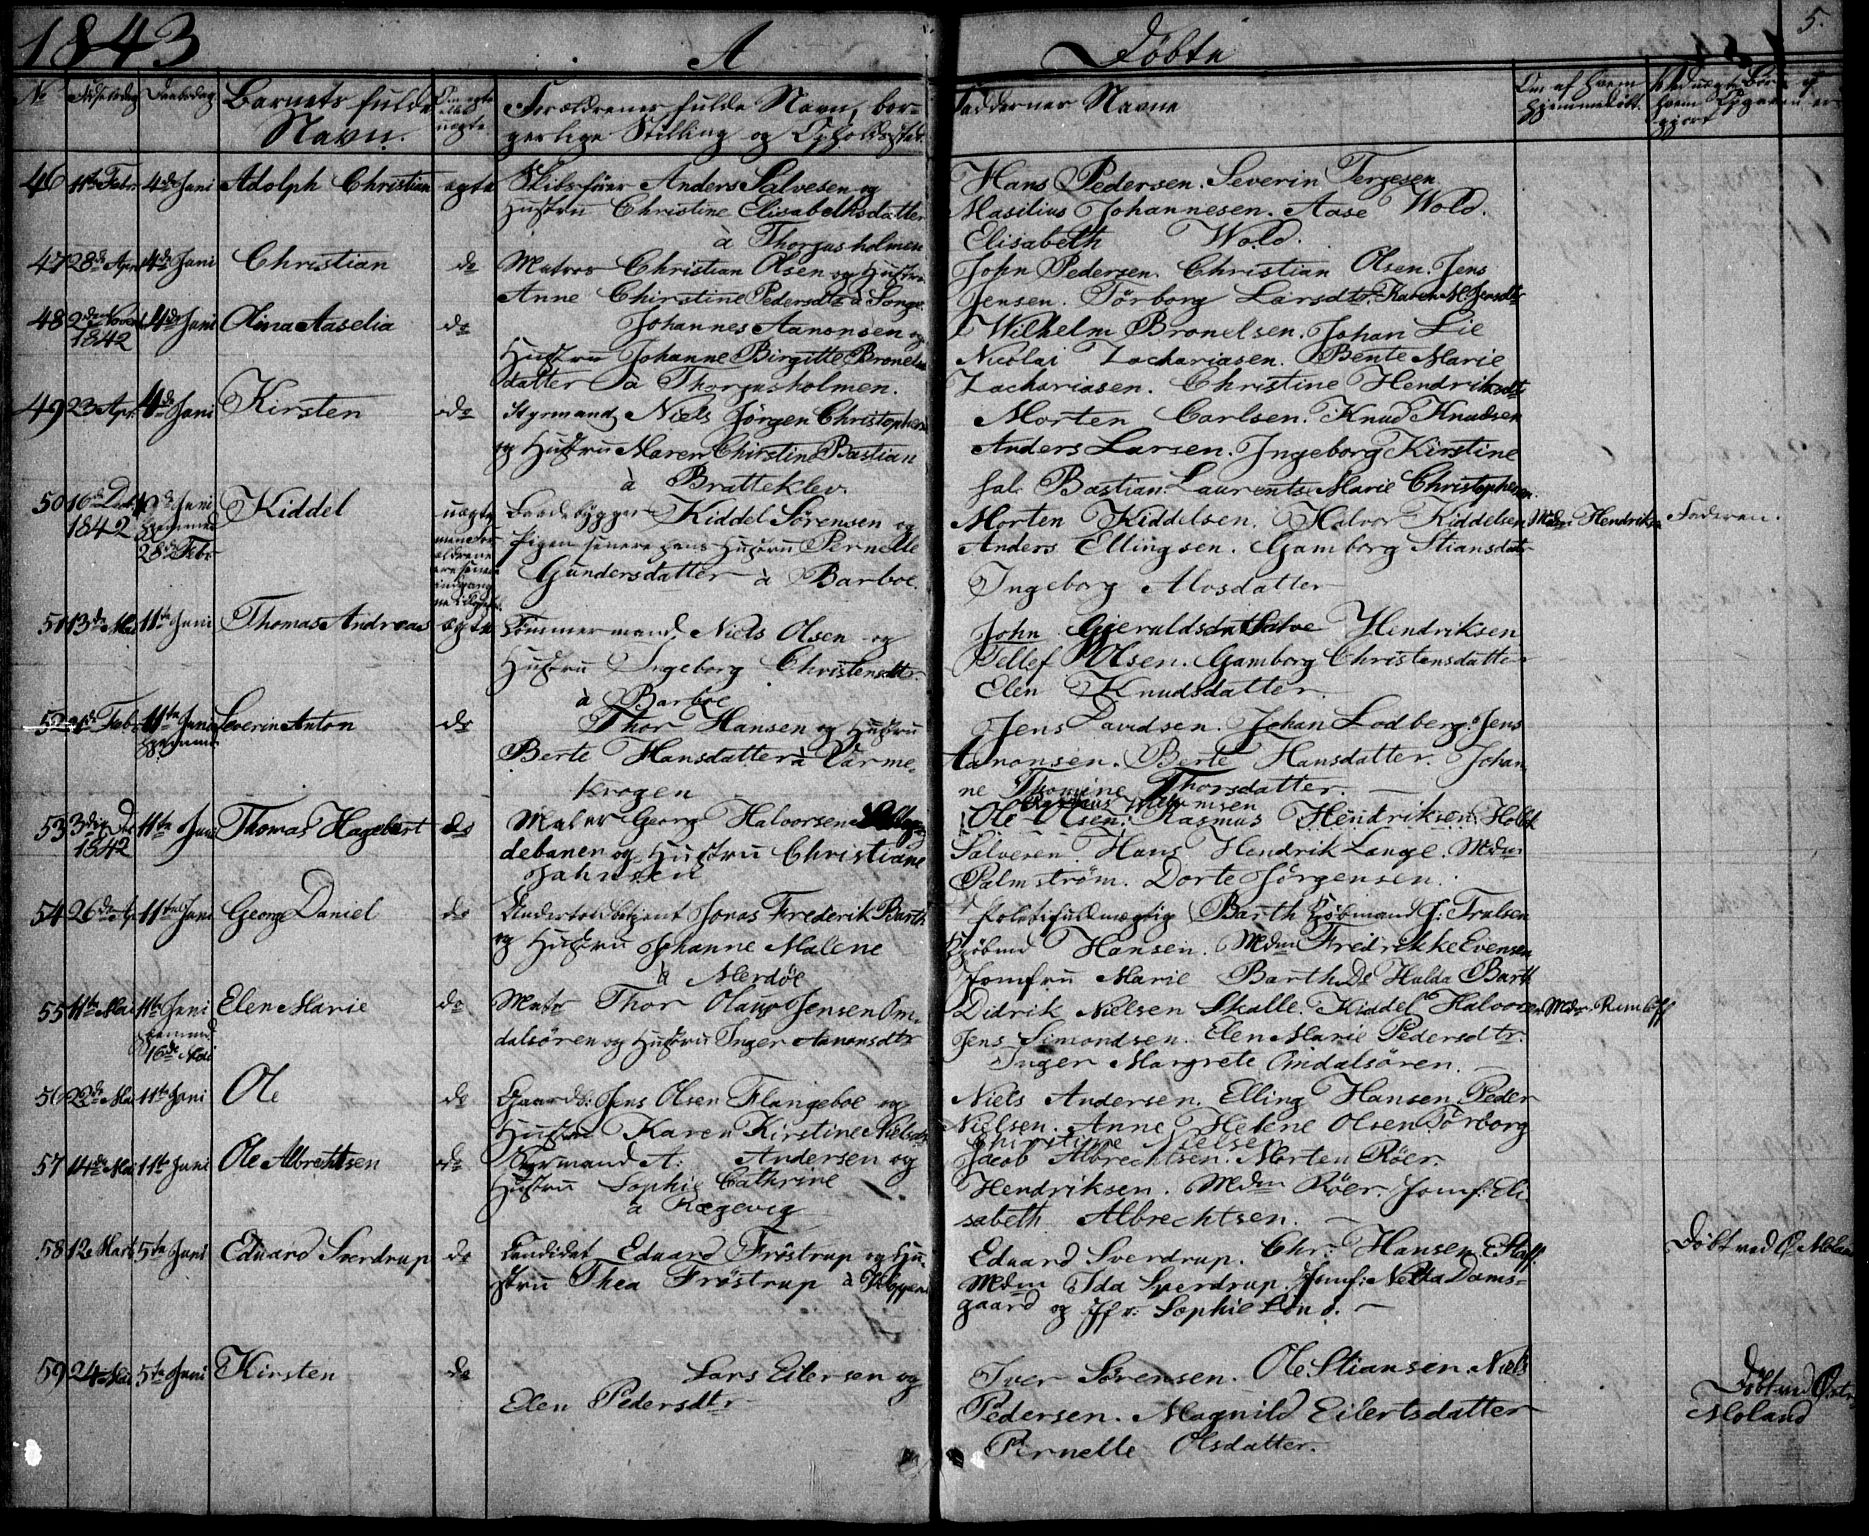 1843 A Døbte 5.
No Fødselsdag Daabsdag Barnets fulde Navn. Om ægte eller uægte Forældrenes fulde Navn, bor-
gerlige Stilling og Opholdssted. Faddernes Navne Om af hvem hjemmedøbt.
46 11te Febr. 4de Juni Adolph Christian ægte Skibsfører Anders Salvesen og
Hustru Christine Elisabethsdatter
à Thorjusholmen
Hans Pedersen. Severin Terjesen
Masilius Johannesen. Aase Wold.
Elisabeth Wold.
47 28de Apr. 4de Juni Christian do Matros Christian Olsen og Hustru
Anne Chirstine Pedersdtr à Songe
John Pedersen. Christian Olsen. Jens
Jensen. Törborg Larsdtr. Karen M. Jensdtr
48 2den Novbr 1842 4de Juni Olina Aaselia do Johannes Aanonsen og
Hustru Johanne Birgitte Bronels
datter à Thorjusholmen.
Wilhelm Bronelsen. Johan Lie
Nicolai Zachariasen. Bente Marie
Zachariasen. Christine Hendriksdtr
49 23 Apr. 4de Juni Kirsten do Styrmand Niels Jörgen Christophers
og Hustru Maren Chirstine Bastian
à Bratteklev.
Morten Carlsen. Knud Knudsen
Anders Larsen. Ingeborg Kirstine
sal. Bastian. Laurentse Marie Christophersen.
50 16de Decbr 1842 Juni hjemmed. 28de Febr Kiddel uægte Baadebygger Kiddel Sörensen og
Pigen senere hans Hustru Pernelle
Gundersdatter à Barboe
Morten Kiddelsen. Halvor Kiddelsen Mdm Hendriksen Faderen.
Anders Ellingsen. Gamborg Stiansdatter
Ingeborg Alosdatter
51 13de Mai 11te Juni Thomas Andreas ægte Tömmermand Niels Olsen og
Hustru Ingeborg Christensdtr
à Barboe
John Gjeruldsen Salve Hendriksen
Tellef Olsen. Gamborg Christensdatter
Elen Knudsdatter.
52 Febr. 11te Juni hjemmed. Severin Anton do Thor Hansen og Hustru
Berte Hansdatter à Varme-
krogen
Jens Davidsen. Johan Lodberg. Jens
Aanonsen. Berte Hansdatter. Johan
ne Thomine Thorsdatter.
53 3die Dec 1842 11te Juni Thomas Hagebart do Maler Georg Halvorsen
debanen og Hustru Christiane
Jahnsen
Ole Olsen. Rasmus Hendriksen. Holbk
Salvesen. Hans Hendrik Lange. Mdm
Palmström. Dorte Jörgensen.
54 26de Apr 11te Juni George Daniel do Undertoldbetjent Jonas Frederik Barth
og Hustru Johanne Malene
à Merdöe
Politifuldmægtig Barth Kjöbmand J: Tralsen
Kjöbmd Hansen. Mdm Fredrikke Evensen
Jomfru Marie Barth. Do Hulda Barth
55 11te Mai 11te Juni hjemmed. 16de Mai Elen Marie do Matr Thor Olaus Jensen Om-
dalsören og Hustru Inger Aanonsdtr
Didrik Nielsen Skalle. Kiddel Halvorsen Mdm. Rumlöff
Jens Simondsen. Elen Marie Pedersdtr.
Inger Margrete Omdalsören.
56 22de Mai 11te Juni Ole do Gaardb: Jens Olsen Flangeboe og
Hustru Karen Kirstine Nielsdtr
Niels Andersen. Elling Hansen. Peder
Nielsen. Anne Helene Olsen Törborg
Chirstine Nielsen
57 14de Mai 11te Juni Ole Albrechtsen do Styrmand A: Andersen og
Hustru Sophie Cathrine
à Rægevig
Jacob Albrechtsen. Morten Röer.
Hendriksen. Mdm Röer. Jomf: Eli-
sabeth Albrechtsen.
58 12te Marts 5te Juni Eduard Sverdrup do Candidat Eduard Fröstrup og Hu-
stru Thea Fröstrup à
Eduard Sverdrup. Chr: Hansen Staff:
Mdm Ida Sverdrup. Jomf: Netta Dams-
gaard og Jfr: Sophie Lund.
Döbt ved Ø. Moland
59 24 Mai 5te Juni Kirsten do Lars Eilersen og
Elen Pedersdtr
Iver Sörensen. Ole Stiansen. Niels
Pedersen. Magnild Eilertsdatter
Pernelle Olsdatter.
Döbt ved Østre
Moland